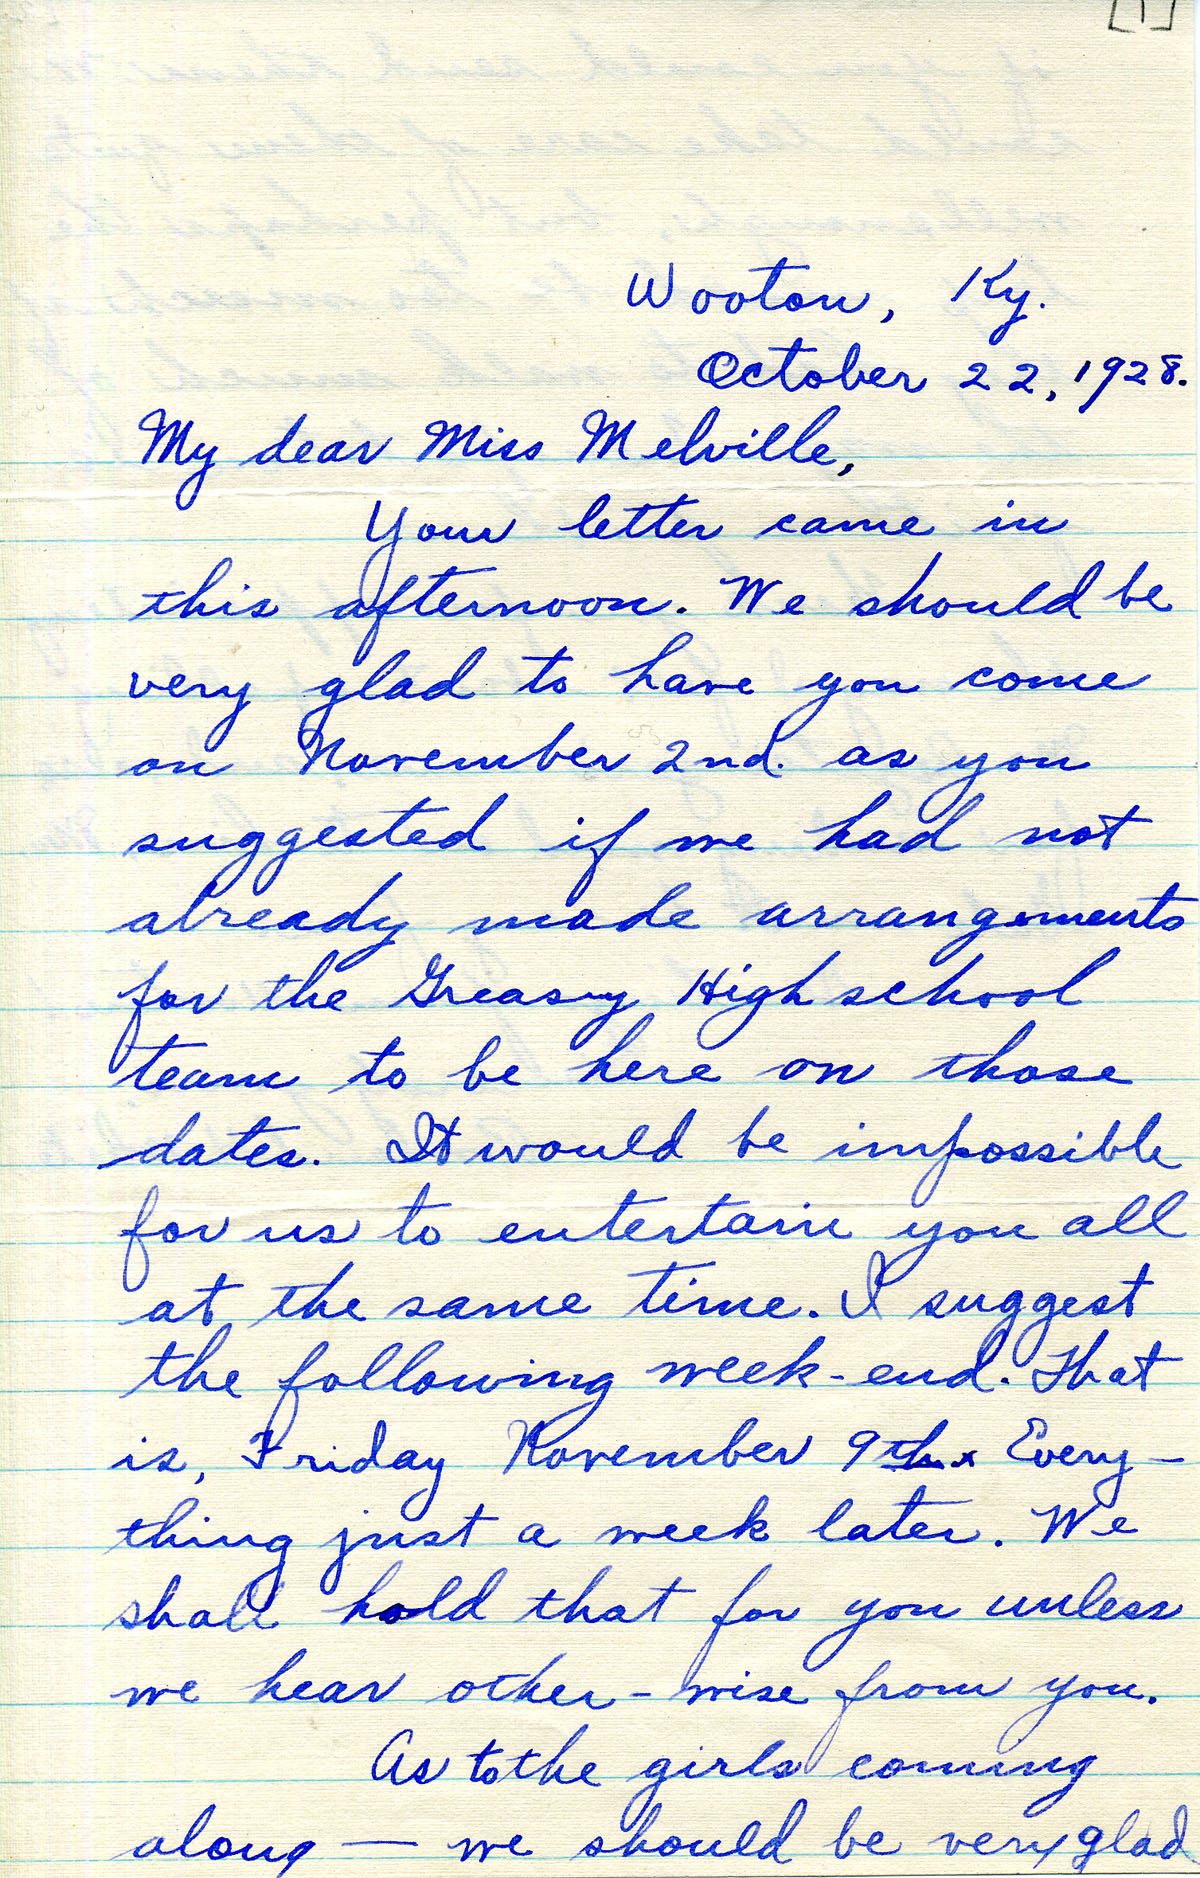 [1]
Wooton, Ky.
October 22, 1928.
My dear Miss Melville,
Your letter came in
this afternoon. We should be
very glad to have you come
on November 2nd. as you
suggested if we had not
already made arrangements
for the Greasy High school
team to be here on those
dates. It would be impossible
for us to entertain you all
at the same time. I suggest
the following week-end. That
is, Friday November 9th. Every-
thing just a week later. We
shall hold that for you unless
we hear other-wise from you.
As to the girls coming
along — we should be very glad